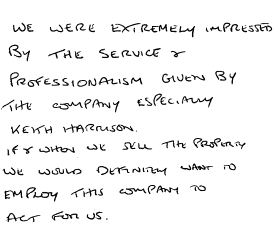 WE WERE EXTREMELY IMPRESSED
BY THE SERVICE &
PROFESSIONALISM GIVEN BY
THE COMPANY ESPECIALLY
KEITH HARRISON.
IF & WHEN WE SELL THE PROPERTY
WE WOULD DEFINITELY WANT TO
EMPLOY THIS COMPANY TO
ACT FOR US.